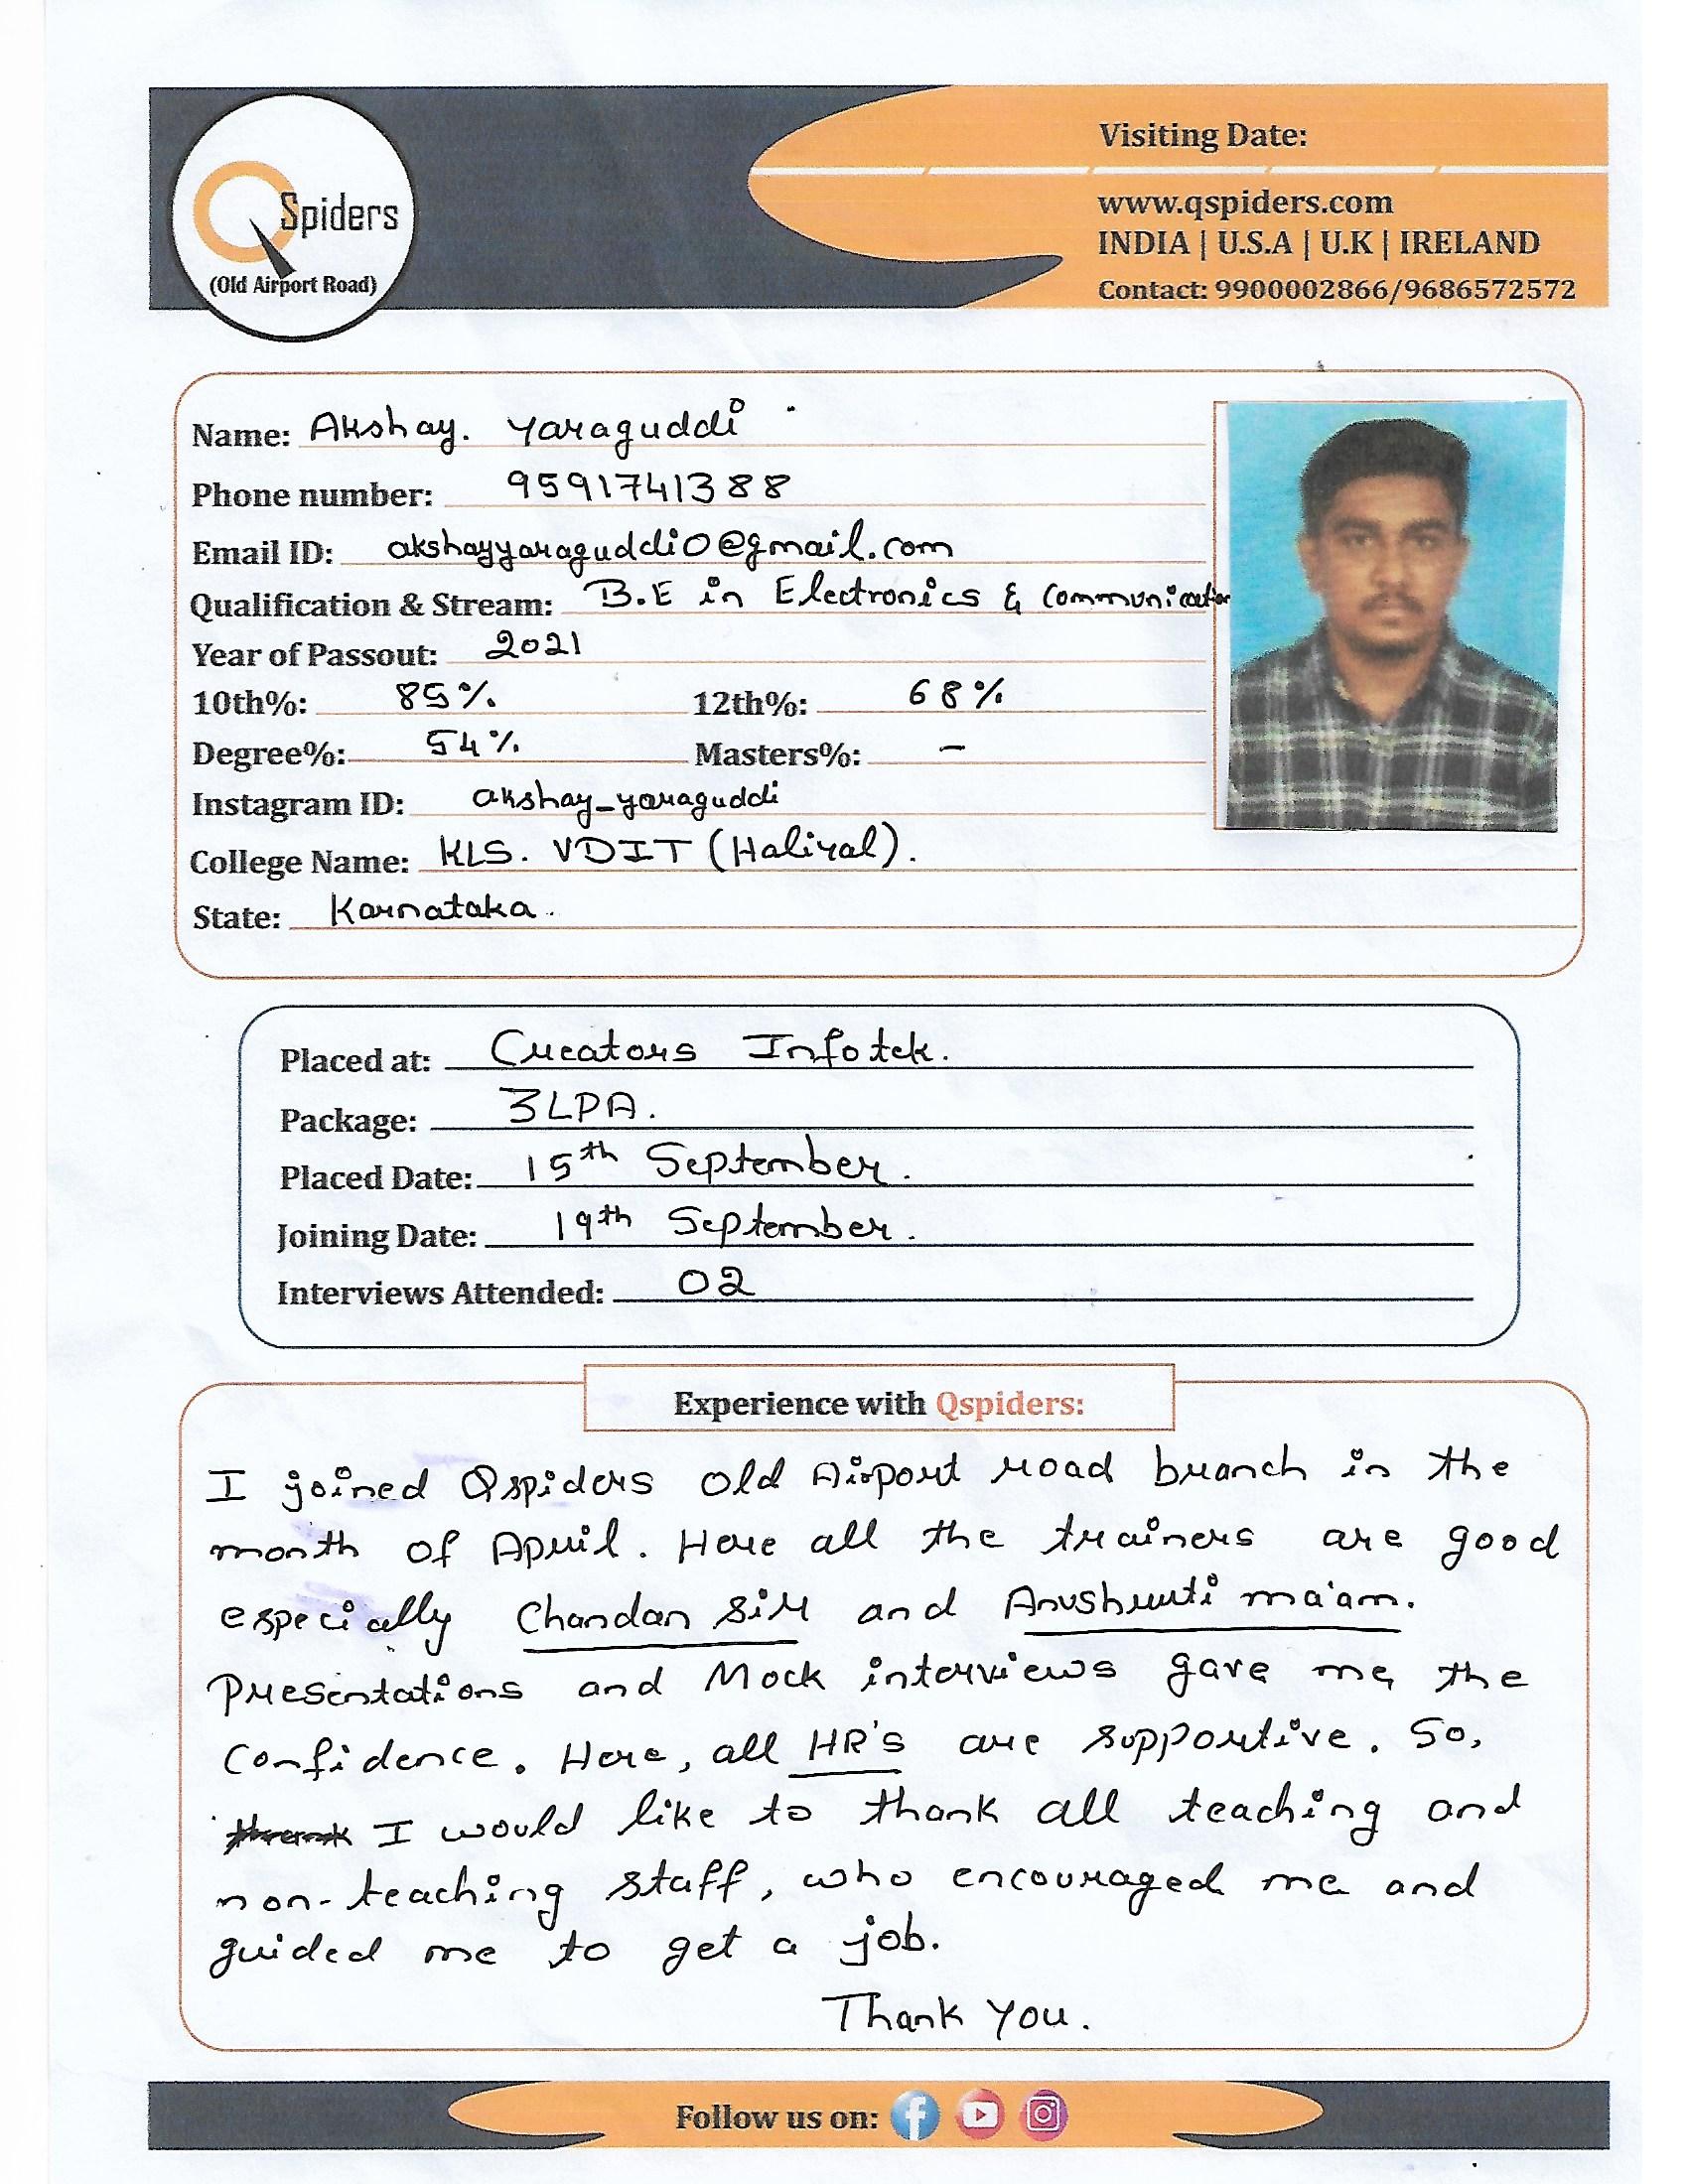 QSpiders
(Old Airport Road)
Visiting Date:
www.qspiders.com
INDIA | U.S.A | U.K | IRELAND
Contact: 9900002866/9686572572
Name: Akshay. Yaraguddi
Phone number: 9591741388
Email ID: akshayyaraguddi0@gmail.com
Qualification & Stream: B.E in Electronics & Communication
Year of Passout: 2021
10th%: 85% 12th%: 68%
Degree%: 54% Masters%: -
Instagram ID: akshay_yaraguddi
College Name: KLS. VDIT (Haliyal).
State: Karnataka.
Placed at: Creators Infotek.
Package: 3LPA.
Placed Date: 15th September.
Joining Date: 19th September.
Interviews Attended: 02
Experience with Qspiders:
I joined Qspiders Old Airport road branch in the
month of April. Here all the trainers are good
especially Chandan Sir and Anushruti ma'am.
Presentations and Mock interviews gave me the
Confidence. Here, all HR's are supportive. So,
thank I would like to thank all teaching and
non-teaching staff, who encouraged me and
guided me to get a job.
Thank You.
Follow us on: